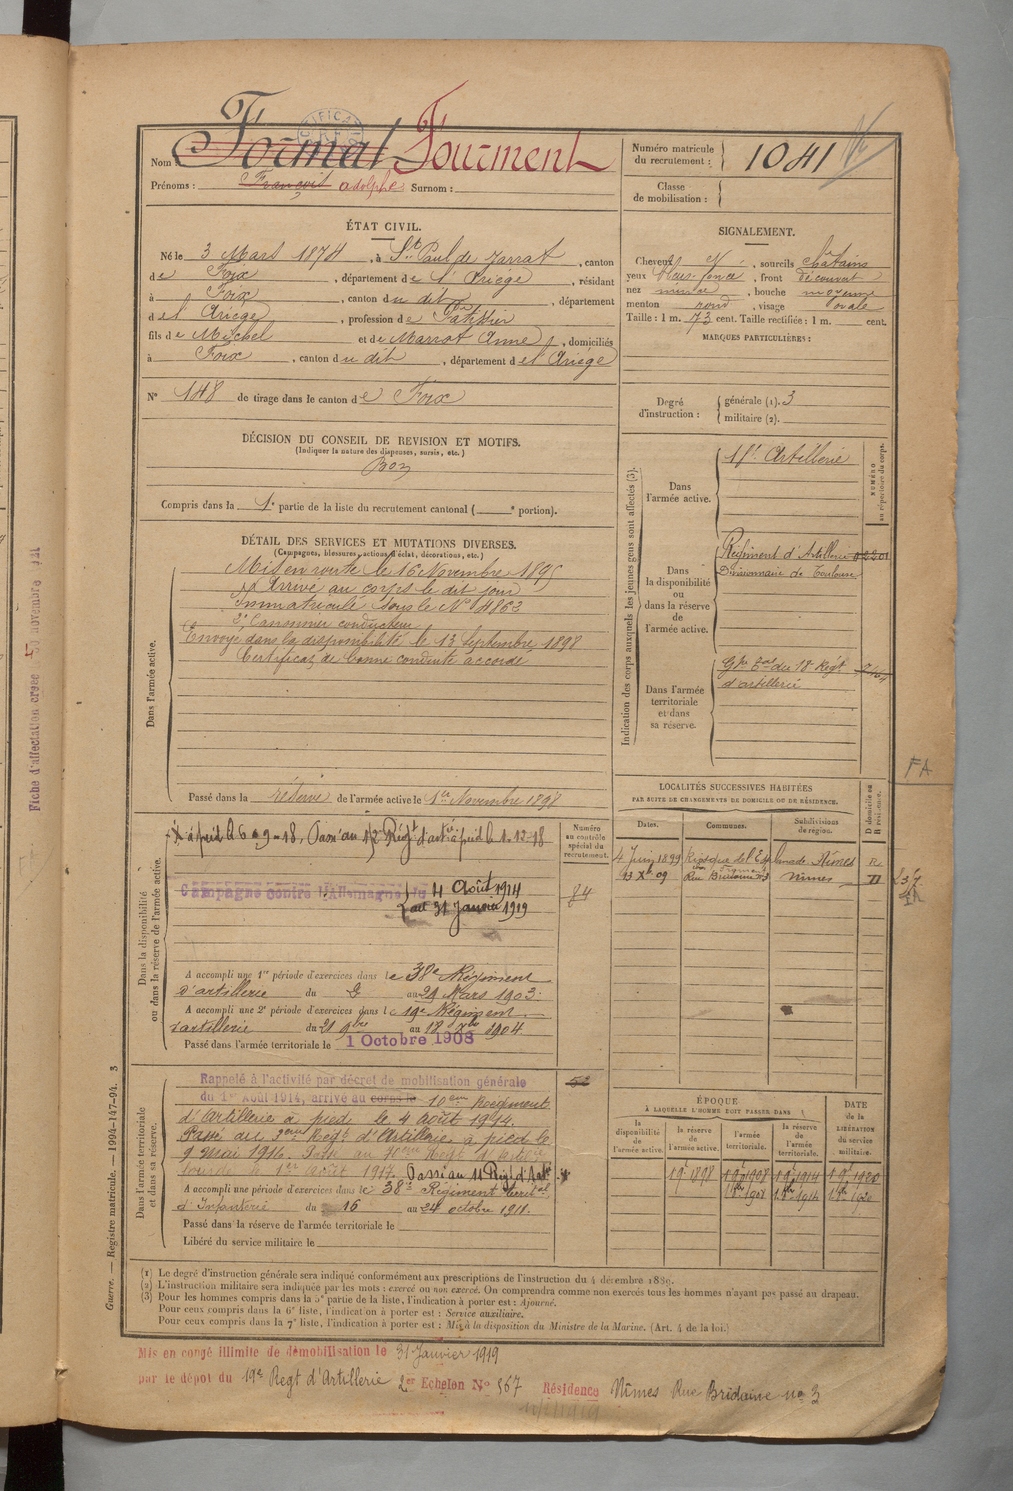 Nom Formal Fourment
Prénoms : François adolphe Surnom :
ÉTAT CIVIL.
Né le 3 Mars 1874, à St Paul de Jarrat, canton
de Foix, département de l'Ariège, résidant
à Foix, canton du dit, département
de l'Ariège, profession de Patissier
fils de Michel et de Marrot Anne, domiciliés
à Foix, canton du dit, département de l'Ariège
N° 148 de tirage dans le canton de Foix
DÉCISION DU CONSEIL DE REVISION ET MOTIFS.
(Indiquer la nature des dispenses, sursis, etc.)
Bon
Compris dans la 1e partie de la liste du recrutement cantonal ( e portion).
DÉTAIL DES SERVICES ET MUTATIONS DIVERSES.
(Campagnes, blessures, actions d'éclat, décorations, etc.)
Dans l'armée active.
Mis en route le 16 Novembre 1895
Arrivé au corps le dit jour
Immatriculé sous le N° 4863
2e Canonnier conducteur
Envoyé dans la disponibilité le 13 Septembre 1898
Certificat de bonne conduite accordé
Passé dans la réserve de l'armée active le 1er Novembre 1898
Dans la disponibilité
ou dans la réserve de l'armée active.
Numéro
au contrôle
spécial du
recrutement.
84
Campagne contre l'Allemagne du 4 Août 1914
au 31 Janvier 1919
A accompli une 1re période d'exercices dans le 38e Régiment
d'artillerie du 2 au 29 Mars 1903.
A accompli une 2e période d'exercices dans le 19e Régiment
d'artillerie du 21 9bre au 18 Xbre 1904
Passé dans l'armée territoriale le 1 Octobre 1908
Dans l'armée territoriale
et dans sa réserve.
Rappelé à l'activité par décret de mobilisation générale
du 1er Août 1914, arrivé au corps le 10ème Régiment
d'Artillerie à pied le 4 août 1914.
Passé au 3ème Regt d'Artillerie à pied le
9 mai 1916. Passé au Regt d'Artillerie
lourde le 1er août 1917. Passé au Regt d'Art
A accompli une période d'exercices dans le 38e Régiment territal
d'Infanterie du 16 au 24 octobre 1911.
Passé dans la réserve de l'armée territoriale le
Libéré du service militaire le
Numéro matricule
du recrutement : 1041
Classe
de mobilisation :
SIGNALEMENT.
Cheveux, sourcils chatains
yeux bleus foncé, front découvert
nez mince, bouche moyenne
menton rond, visage ovale
Taille : 1 m. 73 cent. Taille rectifiée : 1 m. cent.
MARQUES PARTICULIÈRES :
Degré
d'instruction :
générale (1). 3
militaire (2).
Indication des corps auxquels les jeunes gens sont affectés (3).
NUMÉRO
au répertoire du corps.
Dans
l'armée active.
18e Artillerie
Dans
la disponibilité
ou
dans la réserve
de
l'armée active.
Régiment d'Artillerie
Divisionnaire de Toulouse
Dans l'armée
territoriale
et dans
sa réserve.
Gpe Tal du 18e Régt
d'artillerie
FA
LOCALITÉS SUCCESSIVES HABITÉES
PAR SUITE DE CHANGEMENTS DE DOMICILE OU DE RÉSIDENCE.
Dates.
Communes.
Subdivisions
de région.
D domicile ou
R résidence.
4 Juin 1899 Kiosque de l'Esplanade Nîmes R
13 Xe 09 Rue Bridaine n°3 Nîmes
ÉPOQUE
À LAQUELLE L'HOMME DOIT PASSER DANS
DATE
de la
LIBÉRATION
du service
militaire.
la
disponibilité
de l'armée
active.
la réserve
de
l'armée active.
l'armée
territoriale.
la réserve
de l'armée
territoriale.
1 9e 1898 1 9e 1908 1 9e 1914 1 9e 1920
1 8bre 1908 1 8bre 1914 1 8bre 1920
(1) Le degré d'instruction générale sera indiqué conformément aux prescriptions de l'instruction du 4 décembre 1889.
(2) L'instruction militaire sera indiquée par les mots : exercé ou non exercé. On comprendra comme non exercés tous les hommes n'ayant pas passé au drapeau.
(3) Pour les hommes compris dans la 5e partie de la liste, l'indication à porter est : Ajourné.
Pour ceux compris dans la 6e liste, l'indication à porter est : Service auxiliaire.
Pour ceux compris dans la 7e liste, l'indication à porter est : Mis à la disposition du Ministre de la Marine. (Art. 4 de la loi.)
Guerre. — Registre matricule. — 1994-147-94. 3
Mis en congé illimité de démobilisation le 31 Janvier 1919
par le dépôt du 19e Regt d'Artillerie 2er Echelon N° 567 Résidence Nîmes Rue Bridaine n° 3
Fiche d'affectation créée